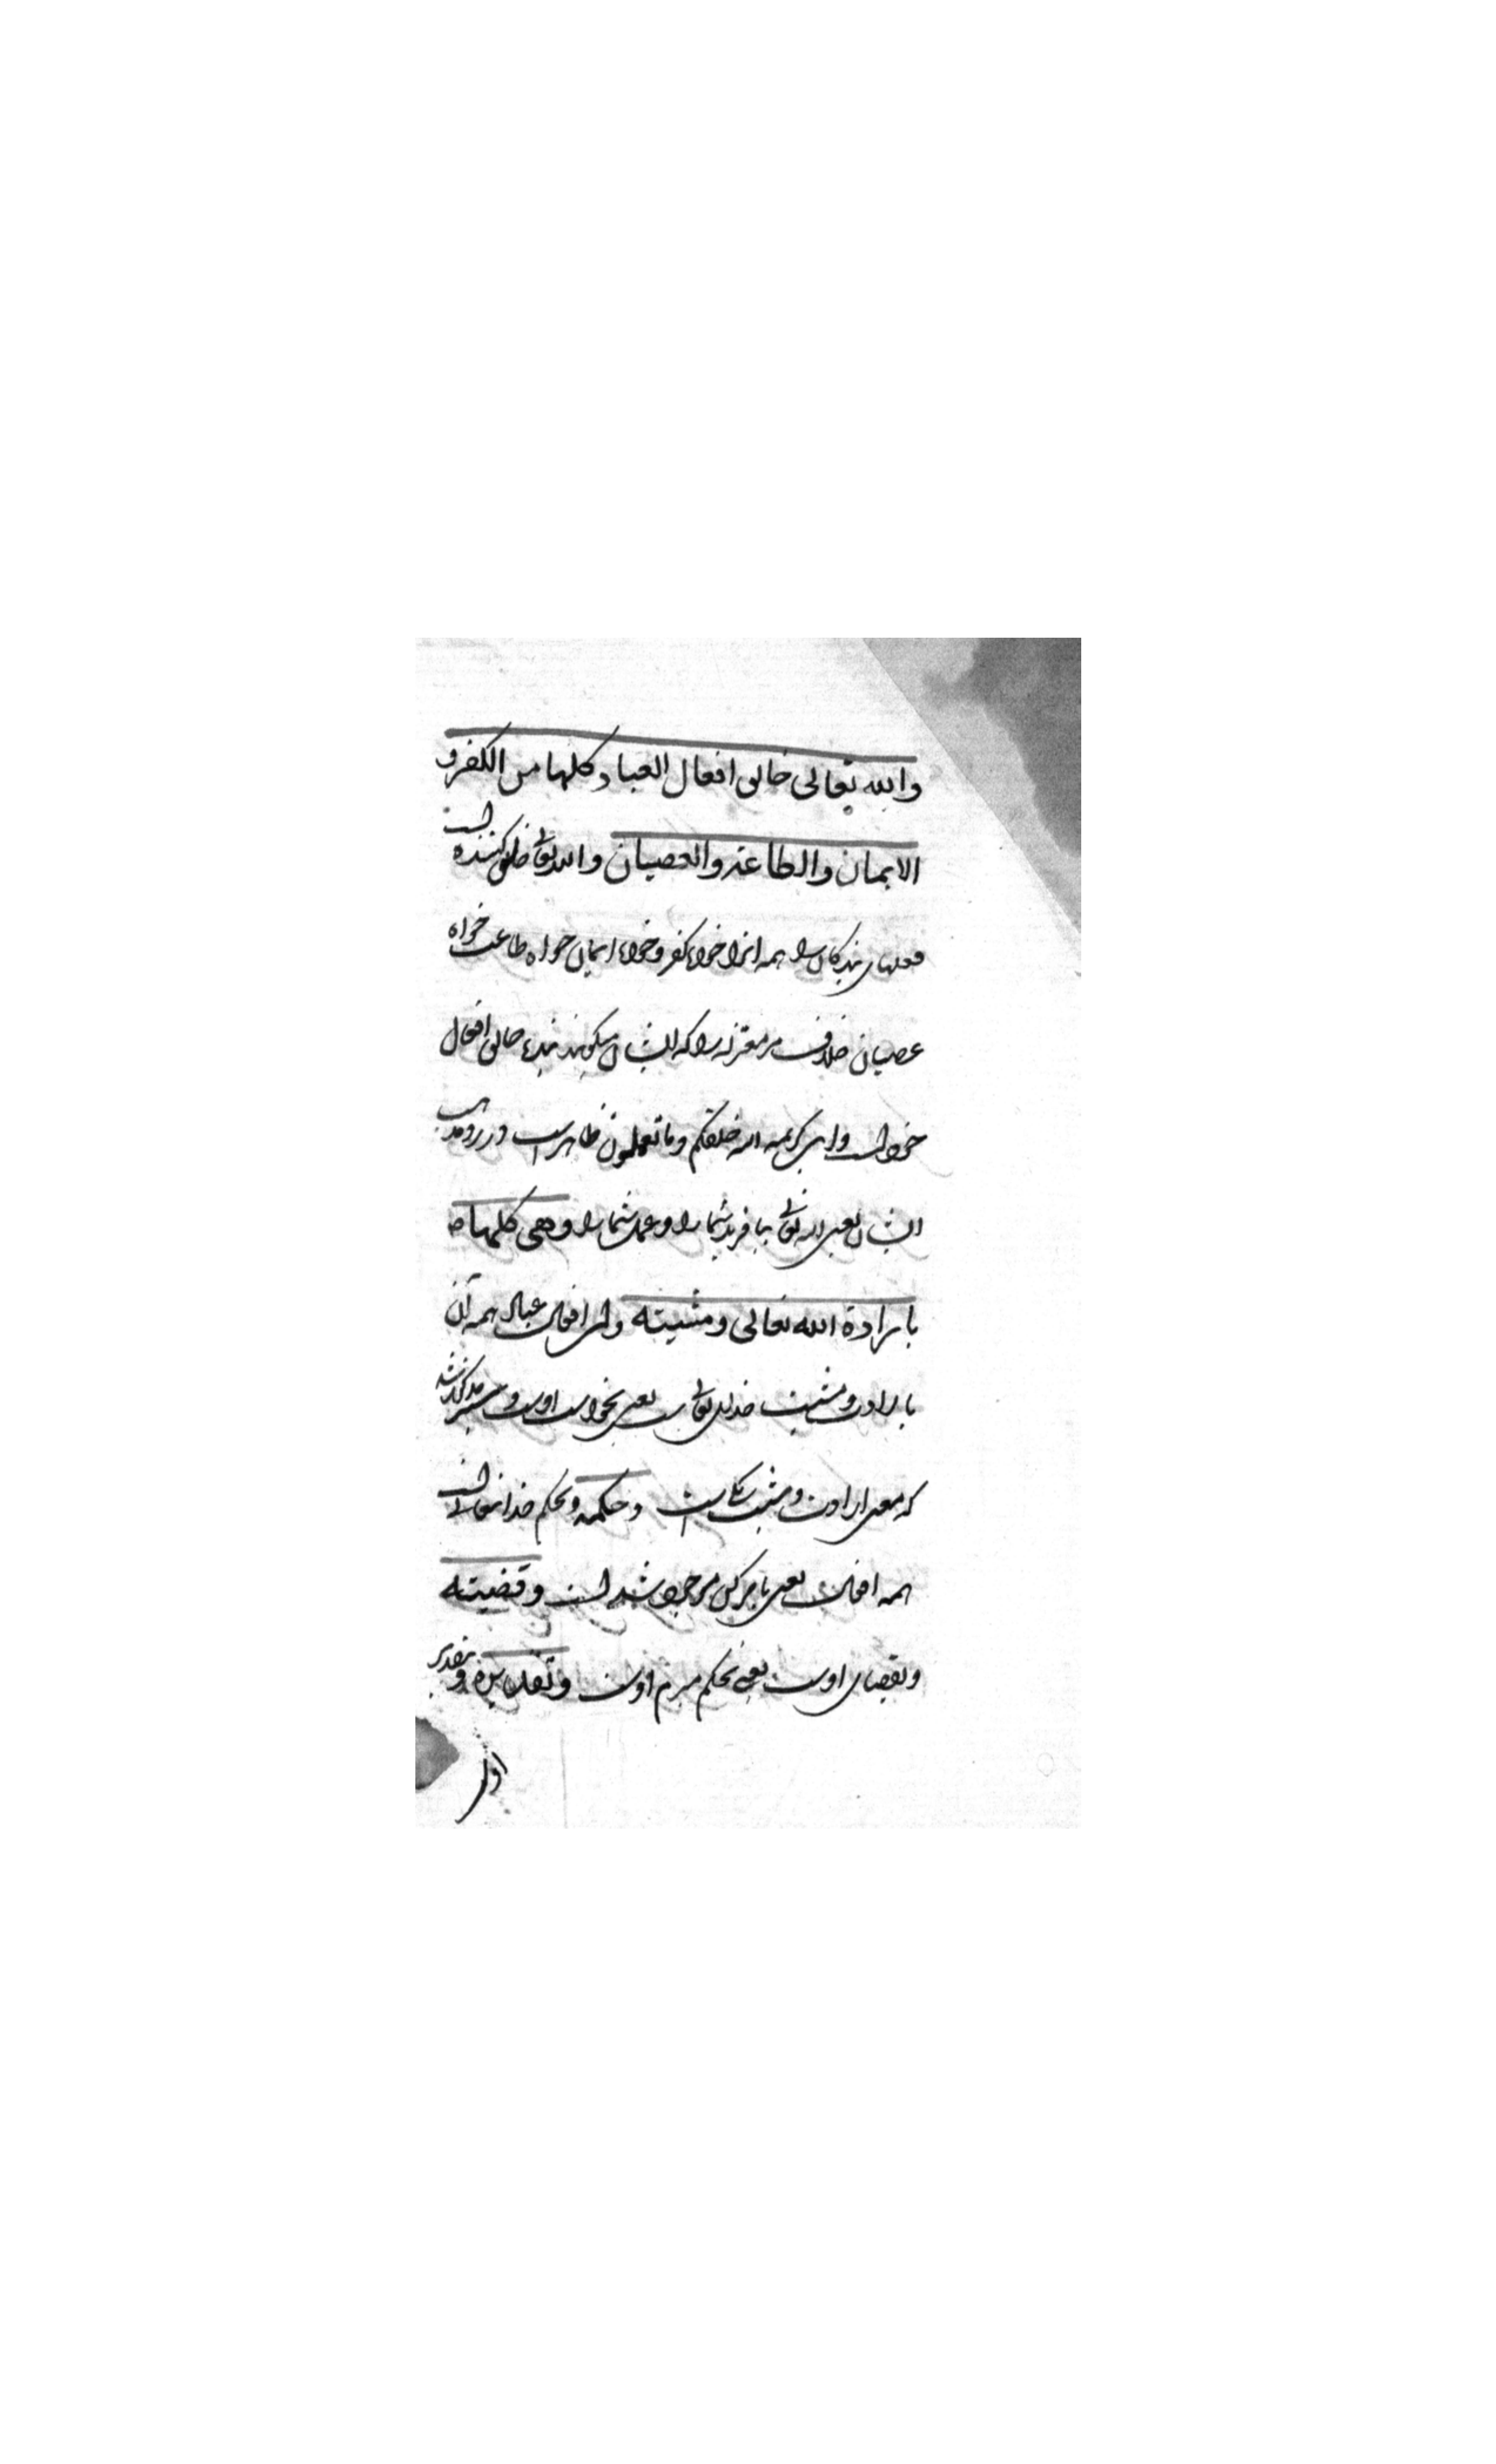 والله تعالى خالق افعال العباد كلها من الكفر و
الايمان والطاعة والعصيان والله تعالى خلق كننده است
فعلهاى بندكان را همه انرا خواه كفر و خواه ايمان خواه طاعت خواه
عصيان خلاف مر معتزله را كه ايشان ميكويند بنده خالق افعال
خود است و اين كريمه الله خلقكم وما تعملون ظاهر است در رد مذهب
ايشان يعنى الله تعالى بيافريد شما را و عمل شما را وهى كلها
بارادة الله تعالى ومشيته واين افعال عباد همه آن
بارادت و مشيت خداى تعالى است يعنى بخواست اوست و
كه معنى ارادت و مشيت يكى است وحكمه و بحكم خداى تعالى است
همه افعال يعنى بامر كن موجود شده است وقضيته
و بقضاى اوست يعنى بحكم مبرم اوست وتقديره و بتقدير
اول